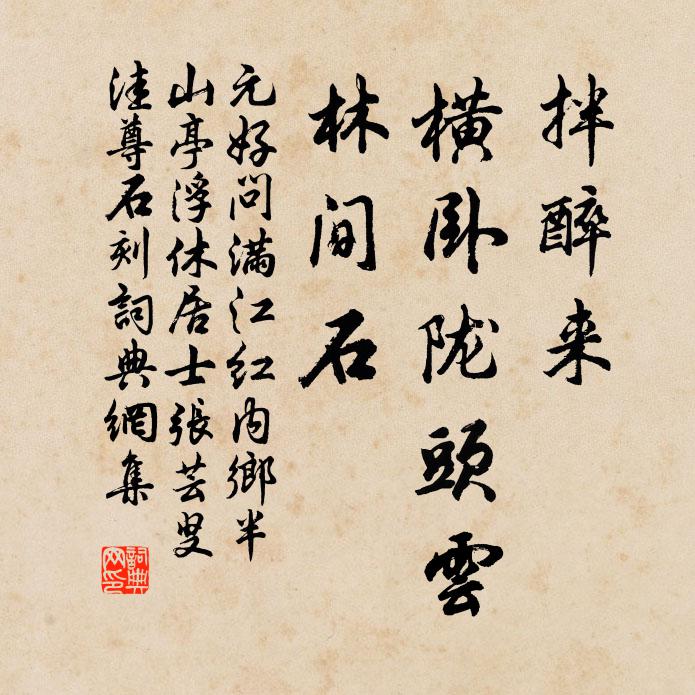 拌醉来
横卧陇頭雲
林间石
元好问满江红内鄉半
山亭浮休居士張芸叟
洼尊石刻詞典網集
詞典
网印